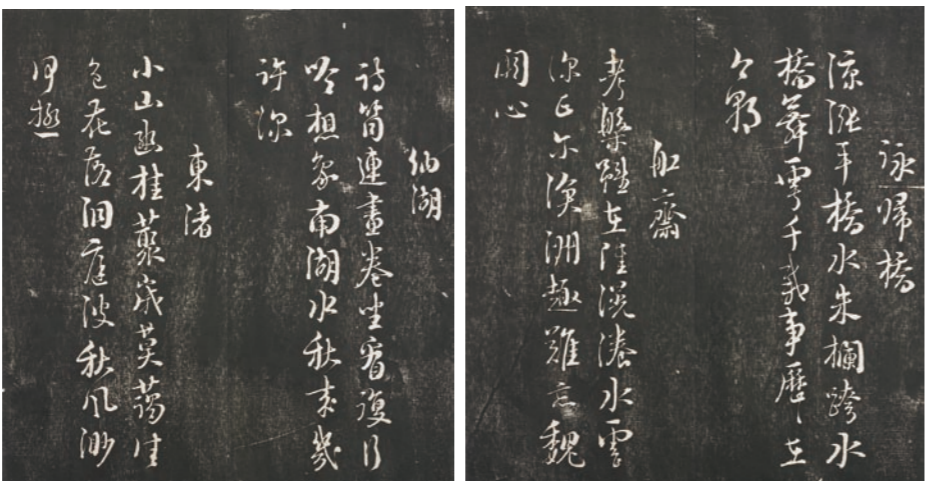 詠歸橋
漲平橋水朱欄跨水
橋舞雩千載事歷〻在
今朝
船齋
考槃雖在陸滉瀁水雲
深正爾滄洲趣難忘魏
闕心
納湖
詩筒連畫卷坐看復行
吟想象南湖水秋來幾
許深
東渚
小山幽桂叢歲莫藹佳
色花落洞庭波秋風渺
何極